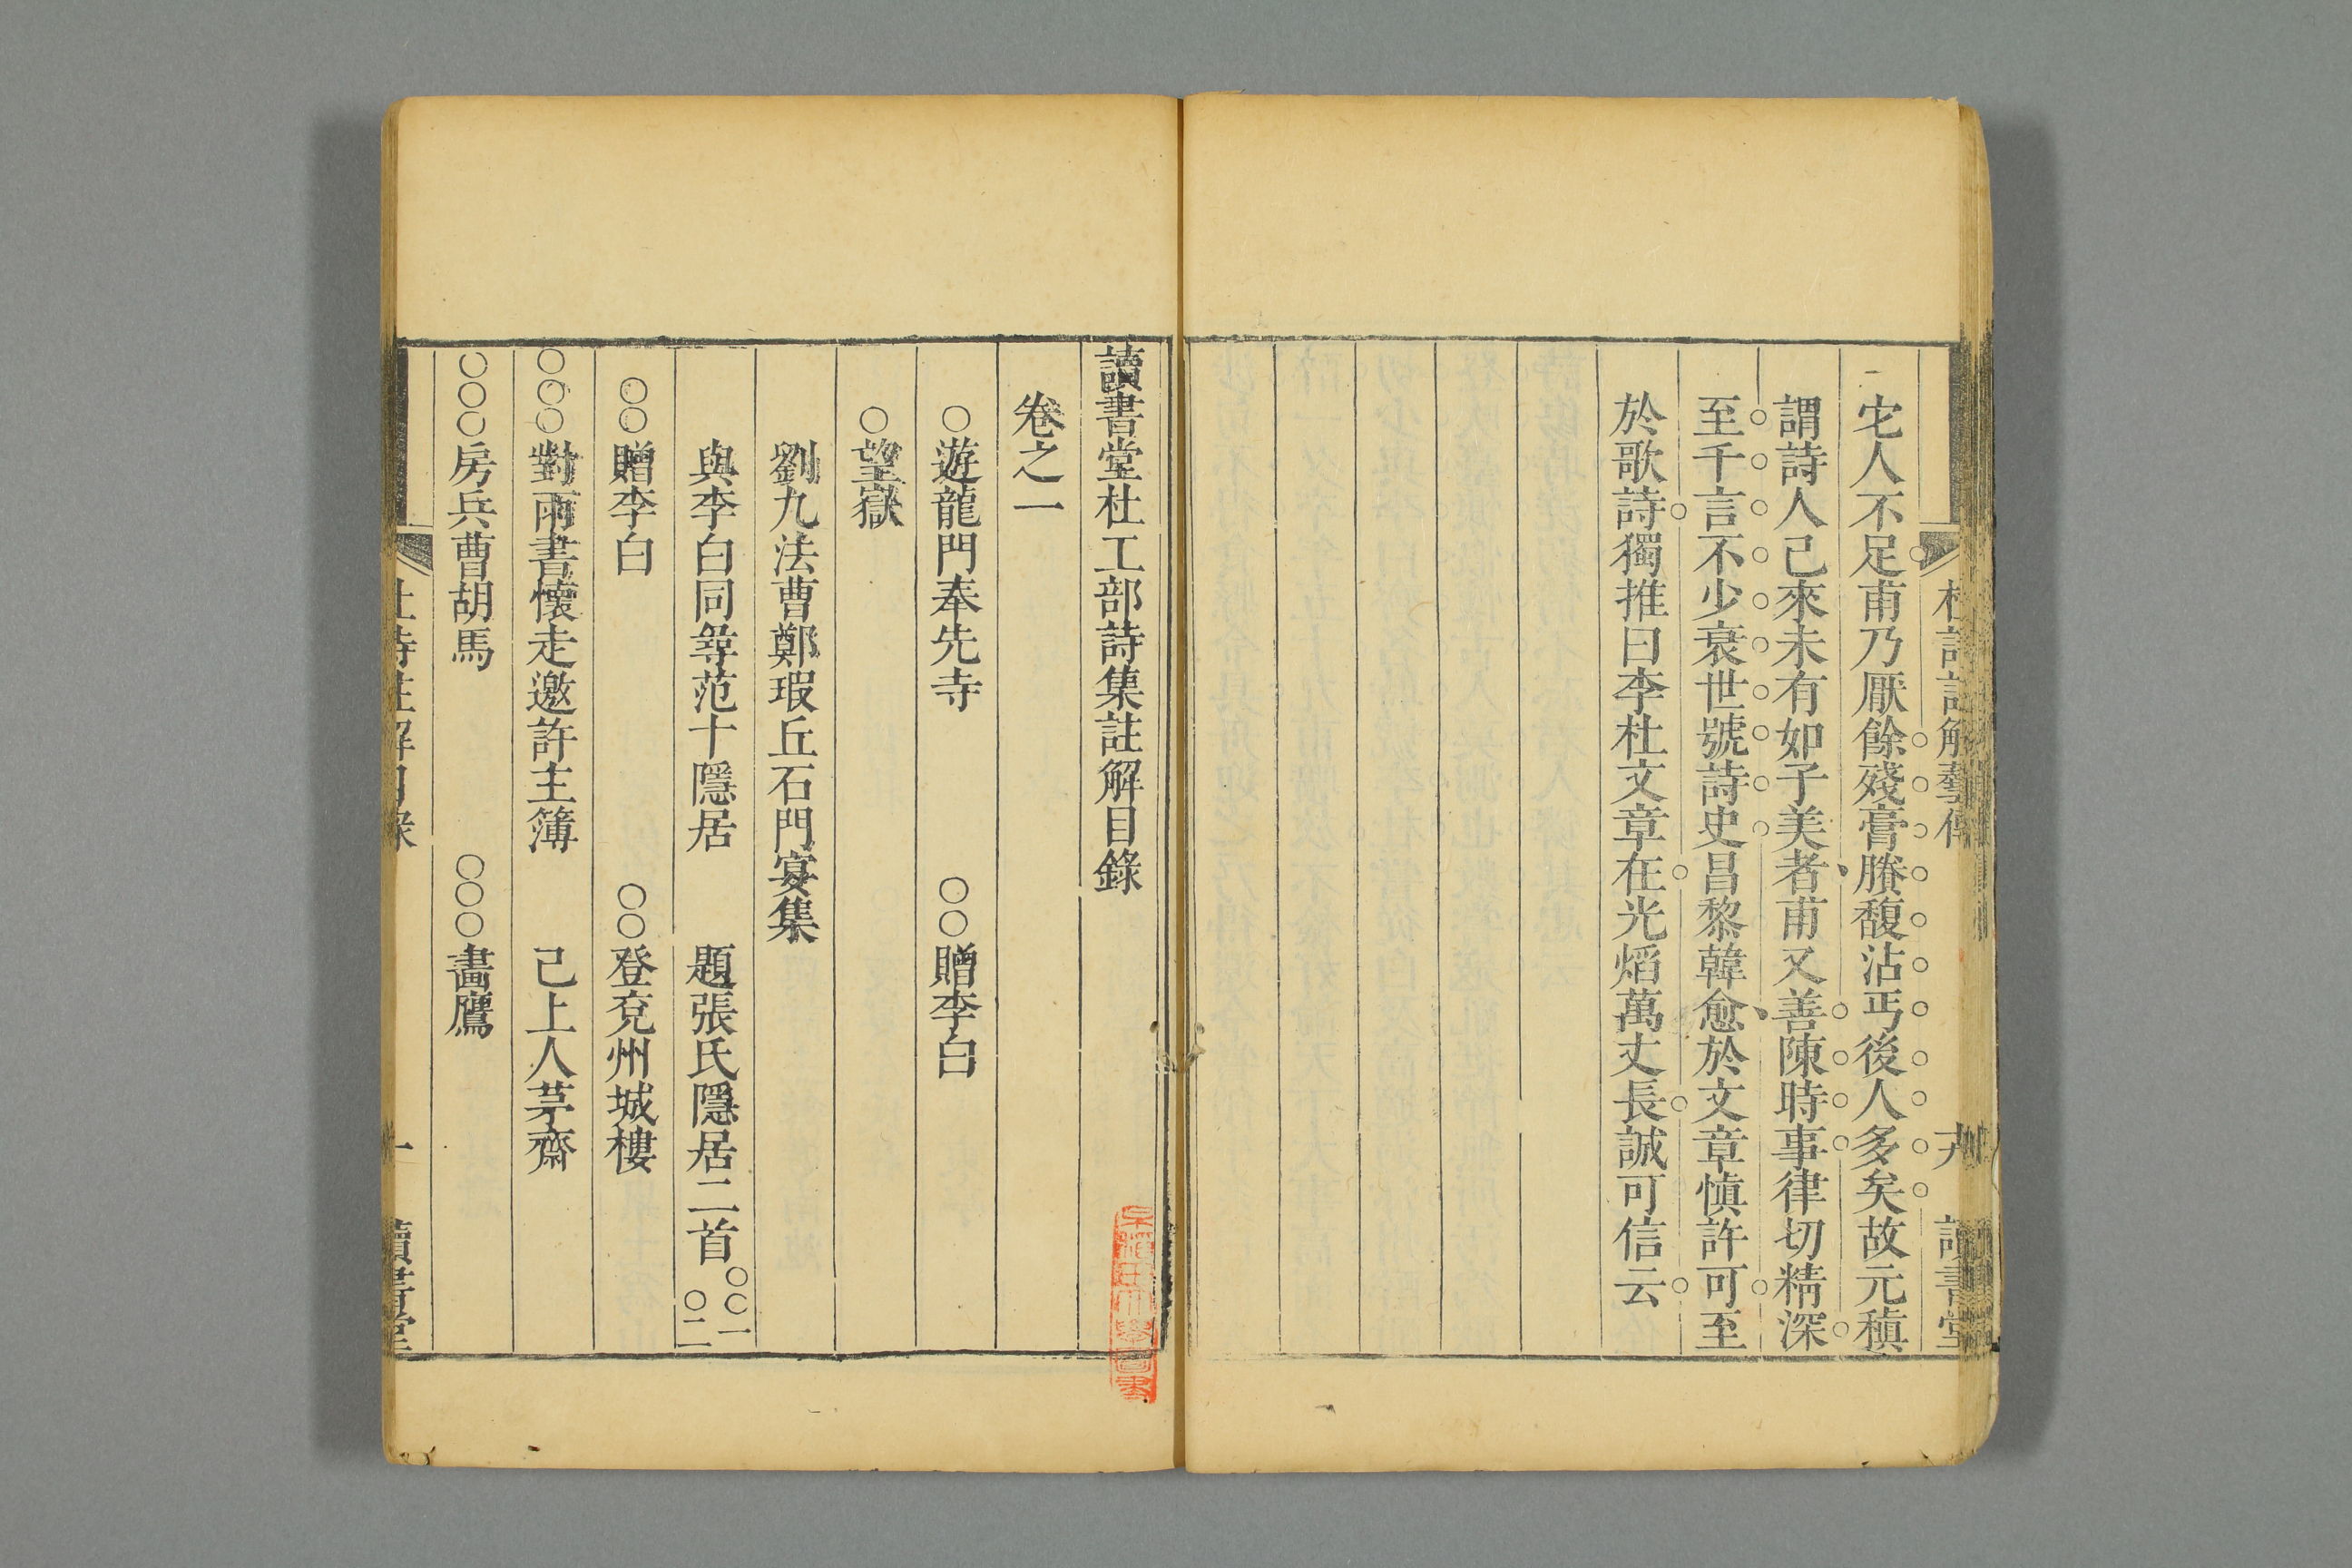 宅人不足甫乃厭餘殘膏賸馥沾丐後人多矣故元稹
謂詩人已來未有如子美者甫又善陳時事律切精深
至千言不少衰世號詩史昌黎韓愈於文章慎許可至
於歌詩獨推曰李杜文章在光熖萬丈長誠可信云
讀書堂杜工部詩集註解目錄
卷之一
○遊龍門奉先寺 ○○贈李白
○望嶽
劉九法曹鄭瑕丘石門宴集
與李白同尋范十隱居 題張氏隱居二首 ○○一 ○二
○○贈李白 ○○登兗州城樓
○○○對雨書懷走邀許主簿 己上人茅齋
○○○房兵曹胡馬 ○○○畫鷹
杜詩註解目錄 一 讀書堂